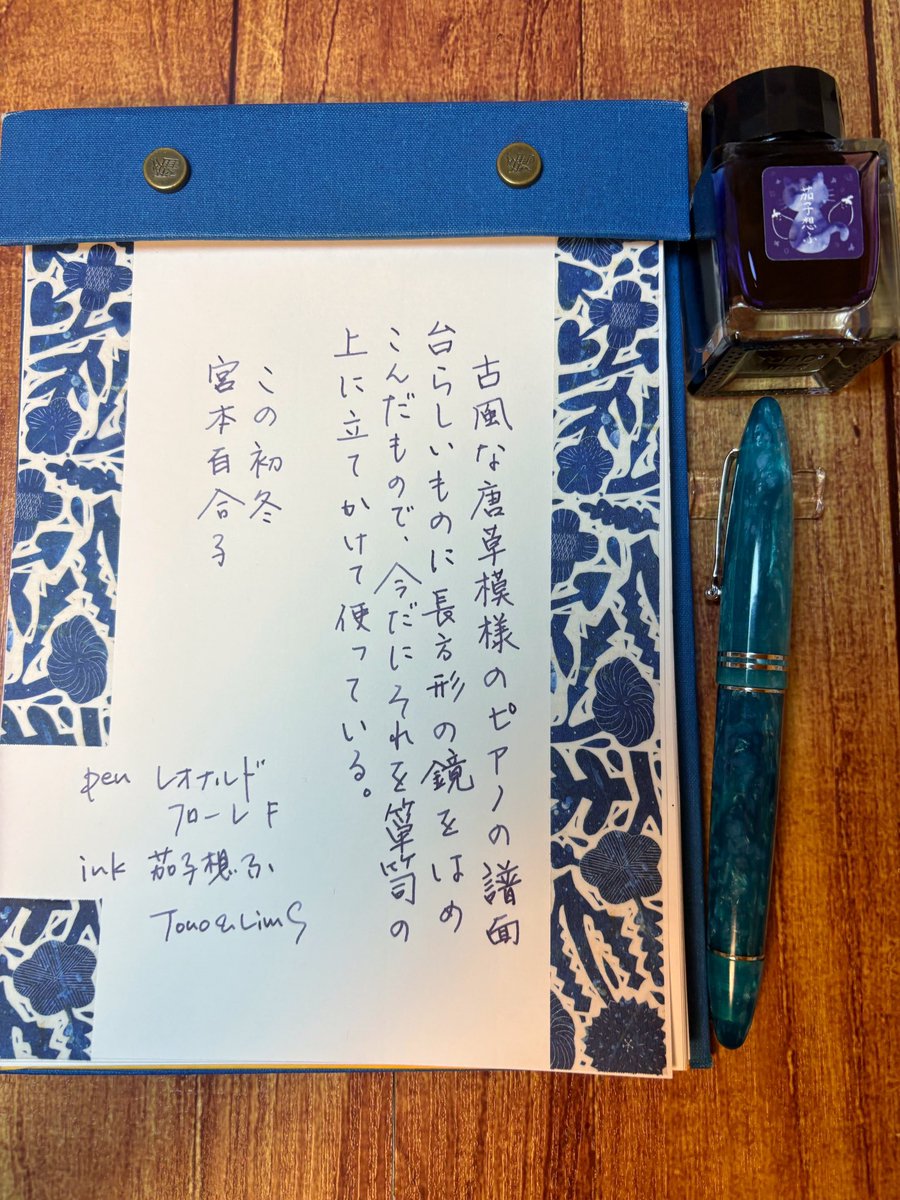 古風な唐草模様のピアノの譜面
台らしいものに長方形の鏡をはめ
こんだもので、今だにそれを箪笥の
上に立てかけて使っている。
この初冬
宮本百合子
pen レオナルド
フローレ F
ink 茄子想ふ
Tono & Lims
茄子想ふ